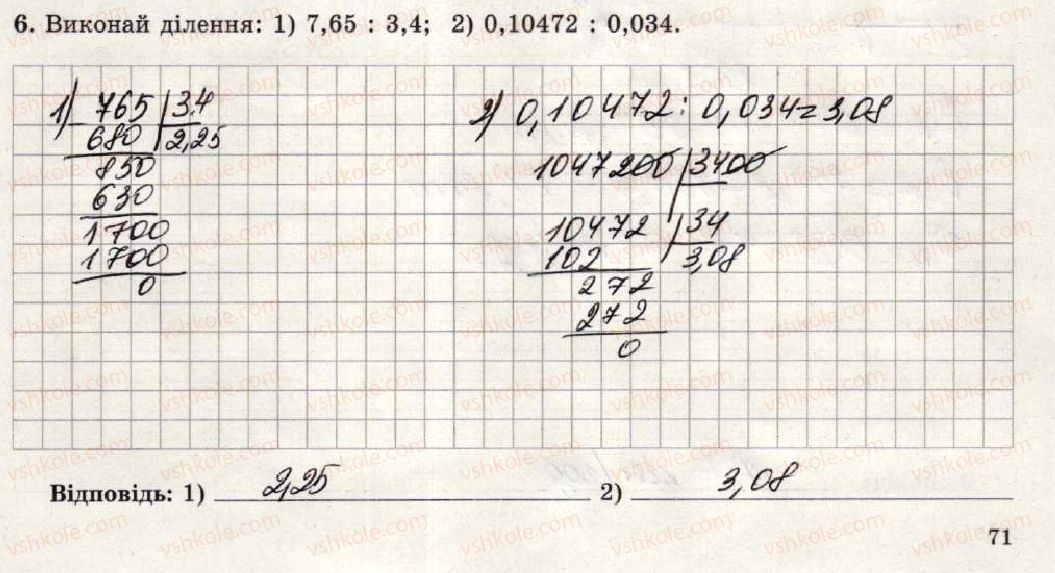 6. Виконай ділення: 1) 7,65 : 3,4; 2) 0,10472 : 0,034.
1) 765 3.4
680 2,25
850
630
1700
1700
0
2) 0,10472 : 0,034 = 3,08
1047200 3400
10472 34
102 3,08
272
272
0
Відповідь: 1) 2,25 2) 3,08
71
vshkole.com